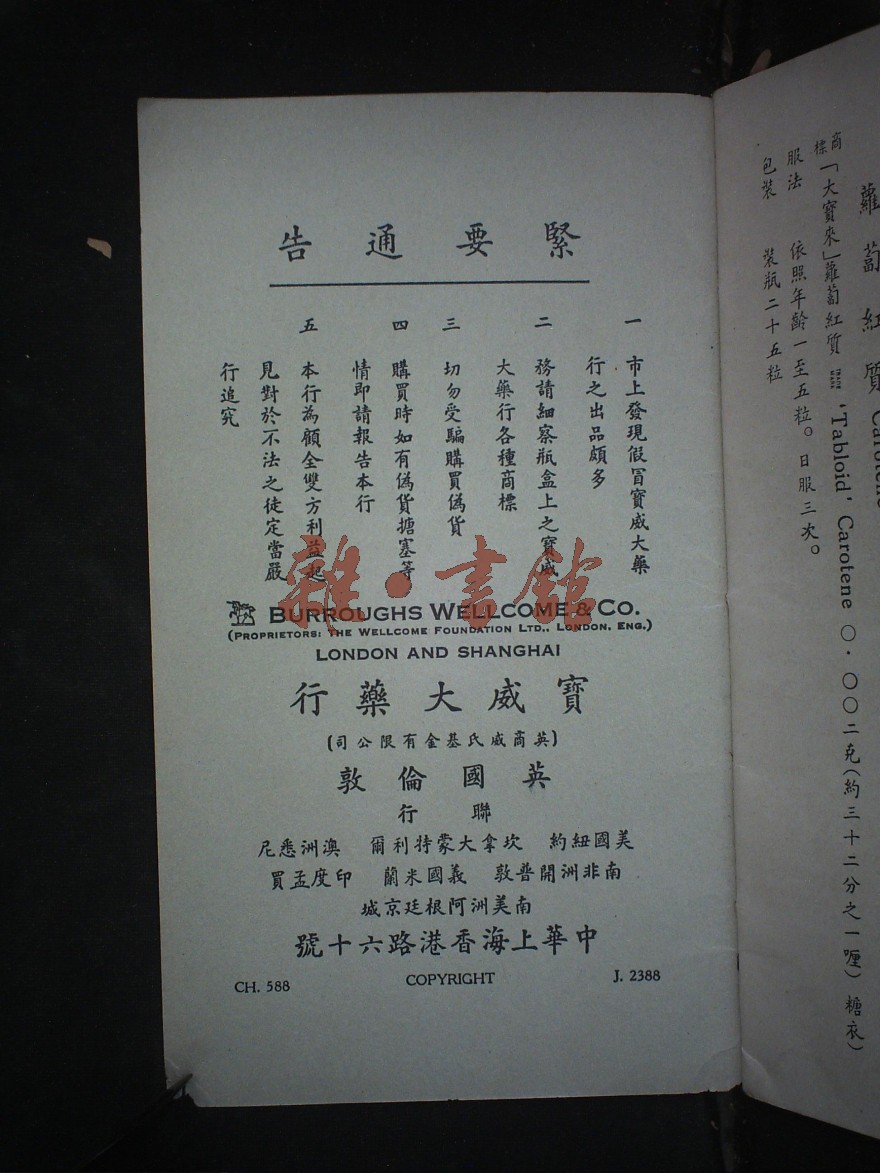 緊要通告
一 市上發現假冒寶威大藥
行之出品頗多
二 務請細察瓶盒上之寶威
大藥行各種商標
三 切勿受騙購買偽貨
四 購買時如有偽貨搪塞等
情即請報告本行
五 本行為顧全雙方利益起
見對於不法之徒定當嚴
行追究
BURROUGHS WELLCOME & CO.
(PROPRIETORS: THE WELLCOME FOUNDATION LTD., LONDON, ENG.)
LONDON AND SHANGHAI
寶威大藥行
(英商威氏基金有限公司)
英國倫敦
聯行
美國紐約 坎拿大蒙特利爾 澳洲悉尼
南非洲開普敦 義國米蘭 印度孟買
南美洲阿根廷京城
中華上海香港路六十號
CH. 588 COPYRIGHT J. 2388
雜·書館
蘿蔔紅質 Carotene
商標「大寶來」蘿蔔紅質 'Tabloid' Carotene 〇·〇〇二克(約三十二分之一喱)糖衣)
服法 依照年齡一至五粒。日服三次。
包裝 裝瓶二十五粒